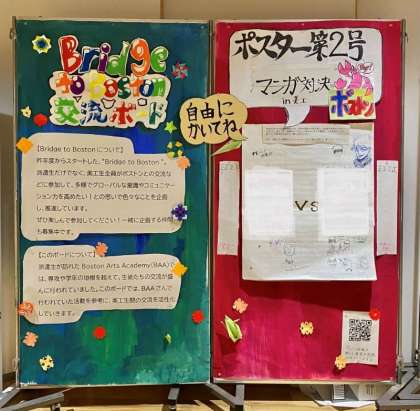 Bridge
to boston
交流ボード
【Bridge to Bostonについて】
昨年度からスタートした、"Bridge to Boston"。
派遣生だけでなく、美工生全員がボストンとの交流な
どに参加して、多様でグローバルな意識やコミュニケー
ション力を高めたい!との思いで色々なことを企画
し、推進しています。
ぜひ楽しんで参加してください!一緒に企画する仲間
も募集中です。
【このボードについて】
派遣生が訪れたBoston Arts Academy(BAA)で
は、専攻や学年の垣根を超えて、生徒たちの交流が盛
んに行われていました。このボードでは、BAAさんで
行われていた活動を参考に、美工生間の交流を活性化
していきます。
自由に
かいてね
ポスター第2号
マンガ対決
in 美工
ボストン
VS